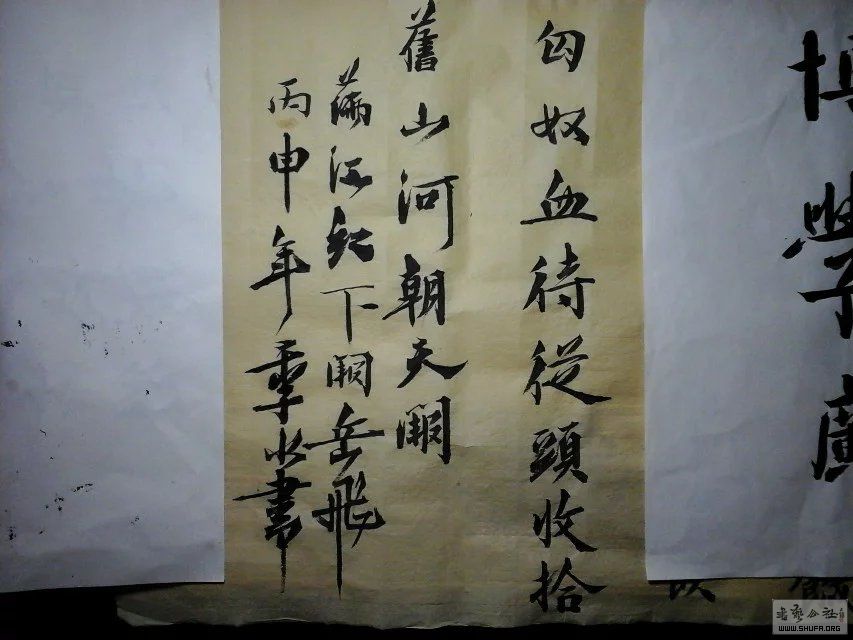 匈奴血待從頭收拾
舊山河朝天闕
滿江紅下闋岳飛
丙申年季水書
博學廣
WWW.SHUFA.ORG